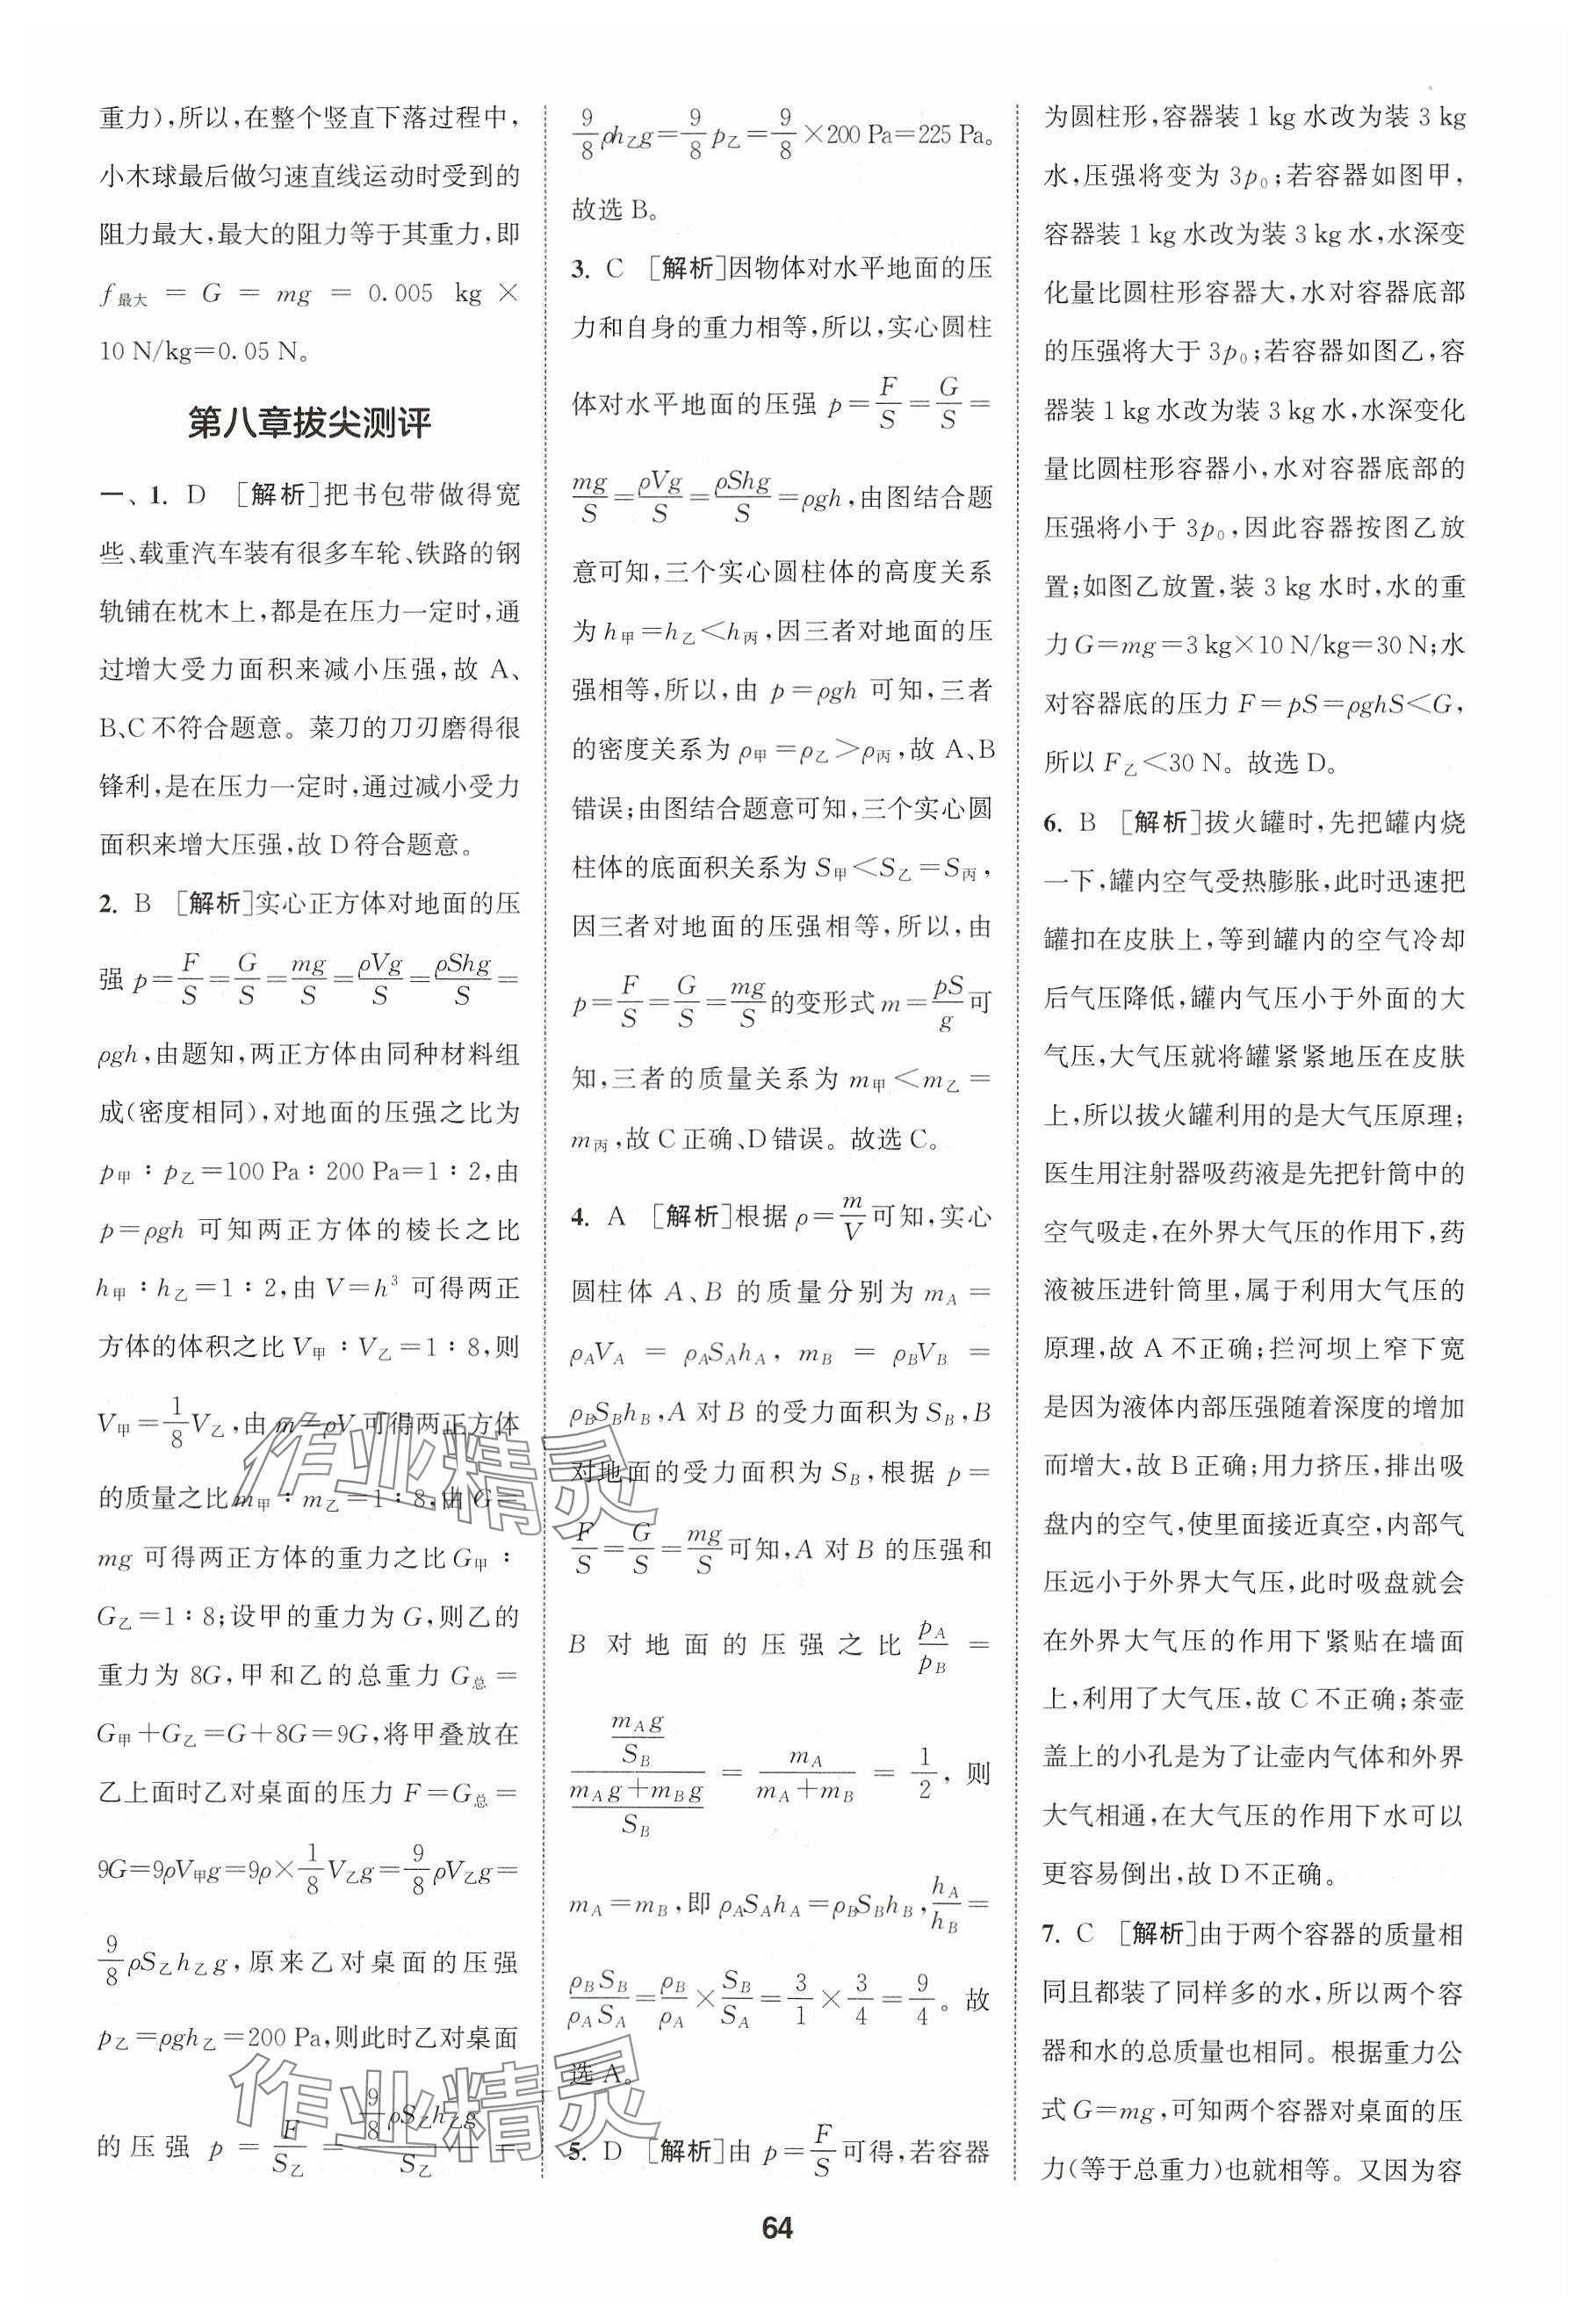 重力),所以,在整个竖直下落过程中,
小木球最后做匀速直线运动时受到的
阻力最大,最大的阻力等于其重力,即
f最大 = G = mg = 0.005 kg ×
10 N/kg=0.05 N。
第八章拔尖测评
一、1. D [解析]把书包带做得宽
些、载重汽车装有很多车轮、铁路的钢
轨铺在枕木上,都是在压力一定时,通
过增大受力面积来减小压强,故 A、
B、C不符合题意。菜刀的刀刃磨得很
锋利,是在压力一定时,通过减小受力
面积来增大压强,故D符合题意。
2. B [解析]实心正方体对地面的压
强 p=F/S=G/S=mg/S=ρVg/S=ρShg/S=
ρgh,由题知,两正方体由同种材料组
成(密度相同),对地面的压强之比为
p甲∶p乙=100 Pa∶200 Pa=1∶2,由
p=ρgh 可知两正方体的棱长之比
h甲∶h乙=1∶2,由 V=h³ 可得两正
方体的体积之比V甲∶V乙=1∶8,则
V甲=1/8V乙,由m=ρV可得两正方体
的质量之比m甲∶m乙=1∶8,由G=
mg 可得两正方体的重力之比G甲∶
G乙=1∶8;设甲的重力为G,则乙的
重力为 8G,甲和乙的总重力 G总=
G甲+G乙=G+8G=9G,将甲叠放在
乙上面时乙对桌面的压力 F=G总=
9G=9ρV甲g=9ρ×1/8V乙g=9/8ρV乙g=
9/8ρS乙h乙g,原来乙对桌面的压强
p乙=ρgh乙=200 Pa,则此时乙对桌面
的压强 p = F/S乙 = (9/8ρS乙h乙g)/S乙 =
9/8ρh乙g=9/8p乙=9/8×200 Pa=225 Pa。
故选B。
3. C [解析]因物体对水平地面的压
力和自身的重力相等,所以,实心圆柱
体对水平地面的压强 p=F/S=G/S=
mg/S=ρVg/S=ρShg/S=ρgh,由图结合题
意可知,三个实心圆柱体的高度关系
为h甲=h乙<h丙,因三者对地面的压
强相等,所以,由 p=ρgh 可知,三者
的密度关系为ρ甲=ρ乙>ρ丙,故A、B
错误;由图结合题意可知,三个实心圆
柱体的底面积关系为S甲<S乙=S丙,
因三者对地面的压强相等,所以,由
p=F/S=G/S=mg/S的变形式m=pS/g可
知,三者的质量关系为m甲<m乙=
m丙,故C正确、D错误。故选C。
4. A [解析]根据ρ=m/V可知,实心
圆柱体 A、B 的质量分别为 mA=
ρAVA = ρASAhA, mB = ρBVB =
ρBSBhB,A对B的受力面积为SB,B
对地面的受力面积为SB,根据 p=
F/S=G/S=mg/S可知,A对B的压强和
B 对地面的压强之比 pA/pB =
(mAg/SB)/((mAg+mBg)/SB) = mA/(mA+mB) = 1/2,则
mA=mB,即ρASAhA=ρBSBhB,hA/hB=
ρBSB/ρASA=ρB/ρA×SB/SA=3/1×3/4=9/4。故
选A。
5. D [解析]由 p=F/S可得,若容器
为圆柱形,容器装1 kg水改为装3 kg
水,压强将变为 3p0;若容器如图甲,
容器装1 kg水改为装3 kg水,水深变
化量比圆柱形容器大,水对容器底部
的压强将大于3p0;若容器如图乙,容
器装1 kg水改为装3 kg水,水深变化
量比圆柱形容器小,水对容器底部的
压强将小于3p0,因此容器按图乙放
置;如图乙放置,装3 kg水时,水的重
力G=mg=3 kg×10 N/kg=30 N;水
对容器底的压力F=pS=ρghS<G,
所以F乙<30 N。故选D。
6. B [解析]拔火罐时,先把罐内烧
一下,罐内空气受热膨胀,此时迅速把
罐扣在皮肤上,等到罐内的空气冷却
后气压降低,罐内气压小于外面的大
气压,大气压就将罐紧紧地压在皮肤
上,所以拔火罐利用的是大气压原理;
医生用注射器吸药液是先把针筒中的
空气吸走,在外界大气压的作用下,药
液被压进针筒里,属于利用大气压的
原理,故A不正确;拦河坝上窄下宽
是因为液体内部压强随着深度的增加
而增大,故B正确;用力挤压,排出吸
盘内的空气,使里面接近真空,内部气
压远小于外界大气压,此时吸盘就会
在外界大气压的作用下紧贴在墙面
上,利用了大气压,故C不正确;茶壶
盖上的小孔是为了让壶内气体和外界
大气相通,在大气压的作用下水可以
更容易倒出,故D不正确。
7. C [解析]由于两个容器的质量相
同且都装了同样多的水,所以两个容
器和水的总质量也相同。根据重力公
式G=mg,可知两个容器对桌面的压
力(等于总重力)也就相等。又因为容
作业精灵
作业精灵
64